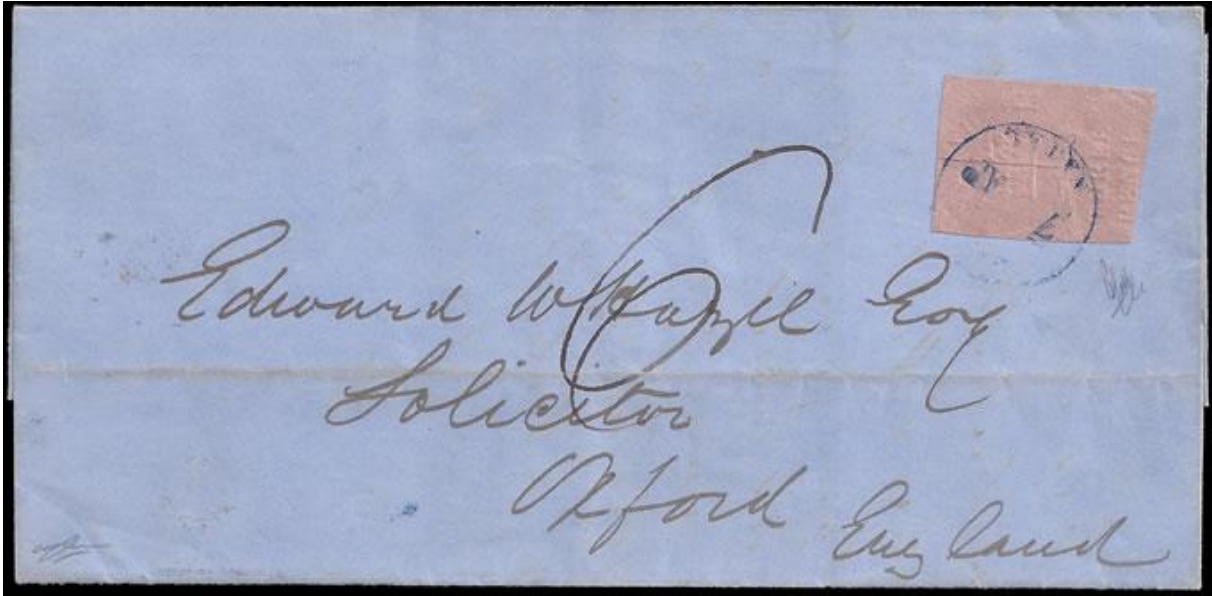 6
Edward W Esq
Solicitor
Oxford
England